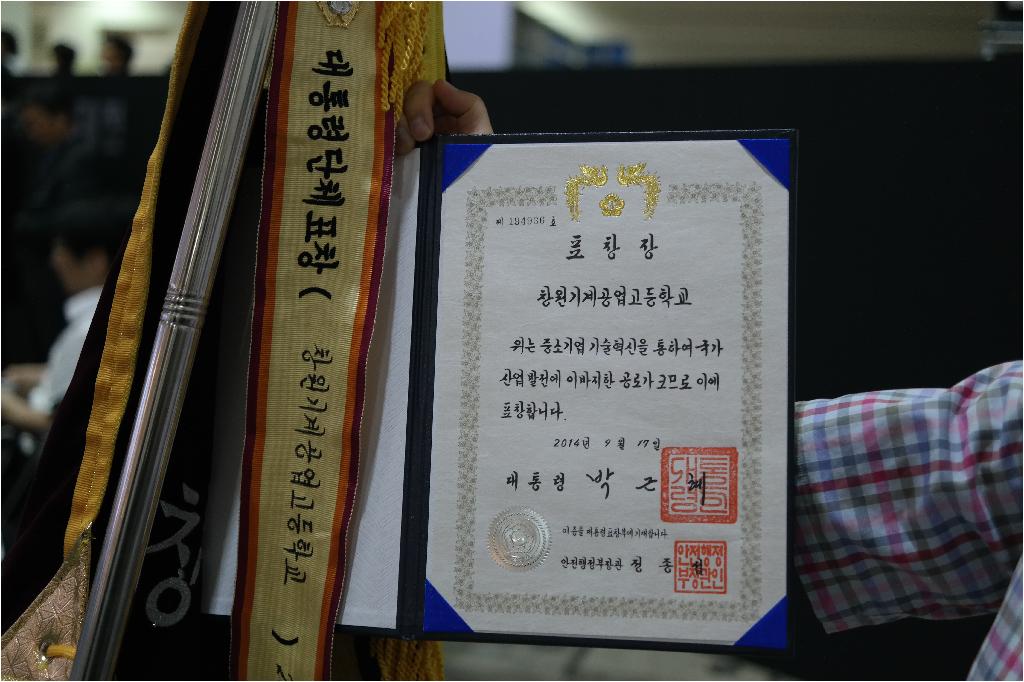 대통령단체표창(창원기계공업고등학교)
제 184986 호
표창장
창원기계공업고등학교
위는 중소기업 기술혁신을 통하여 국가
산업 발전에 이바지한 공로가 크므로 이에
표창합니다.
2014년 9월 17일
대통령 박근혜
이 증을 대통령표창부에 기재합니다.
안전행정부장관 정종섭
안전행정
부장관인